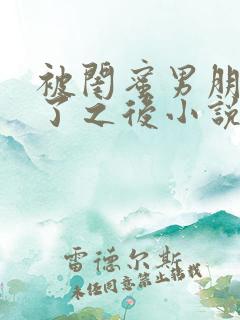 被闺蜜男朋
了之后小说
雷德尔斯
未经同意禁止转载